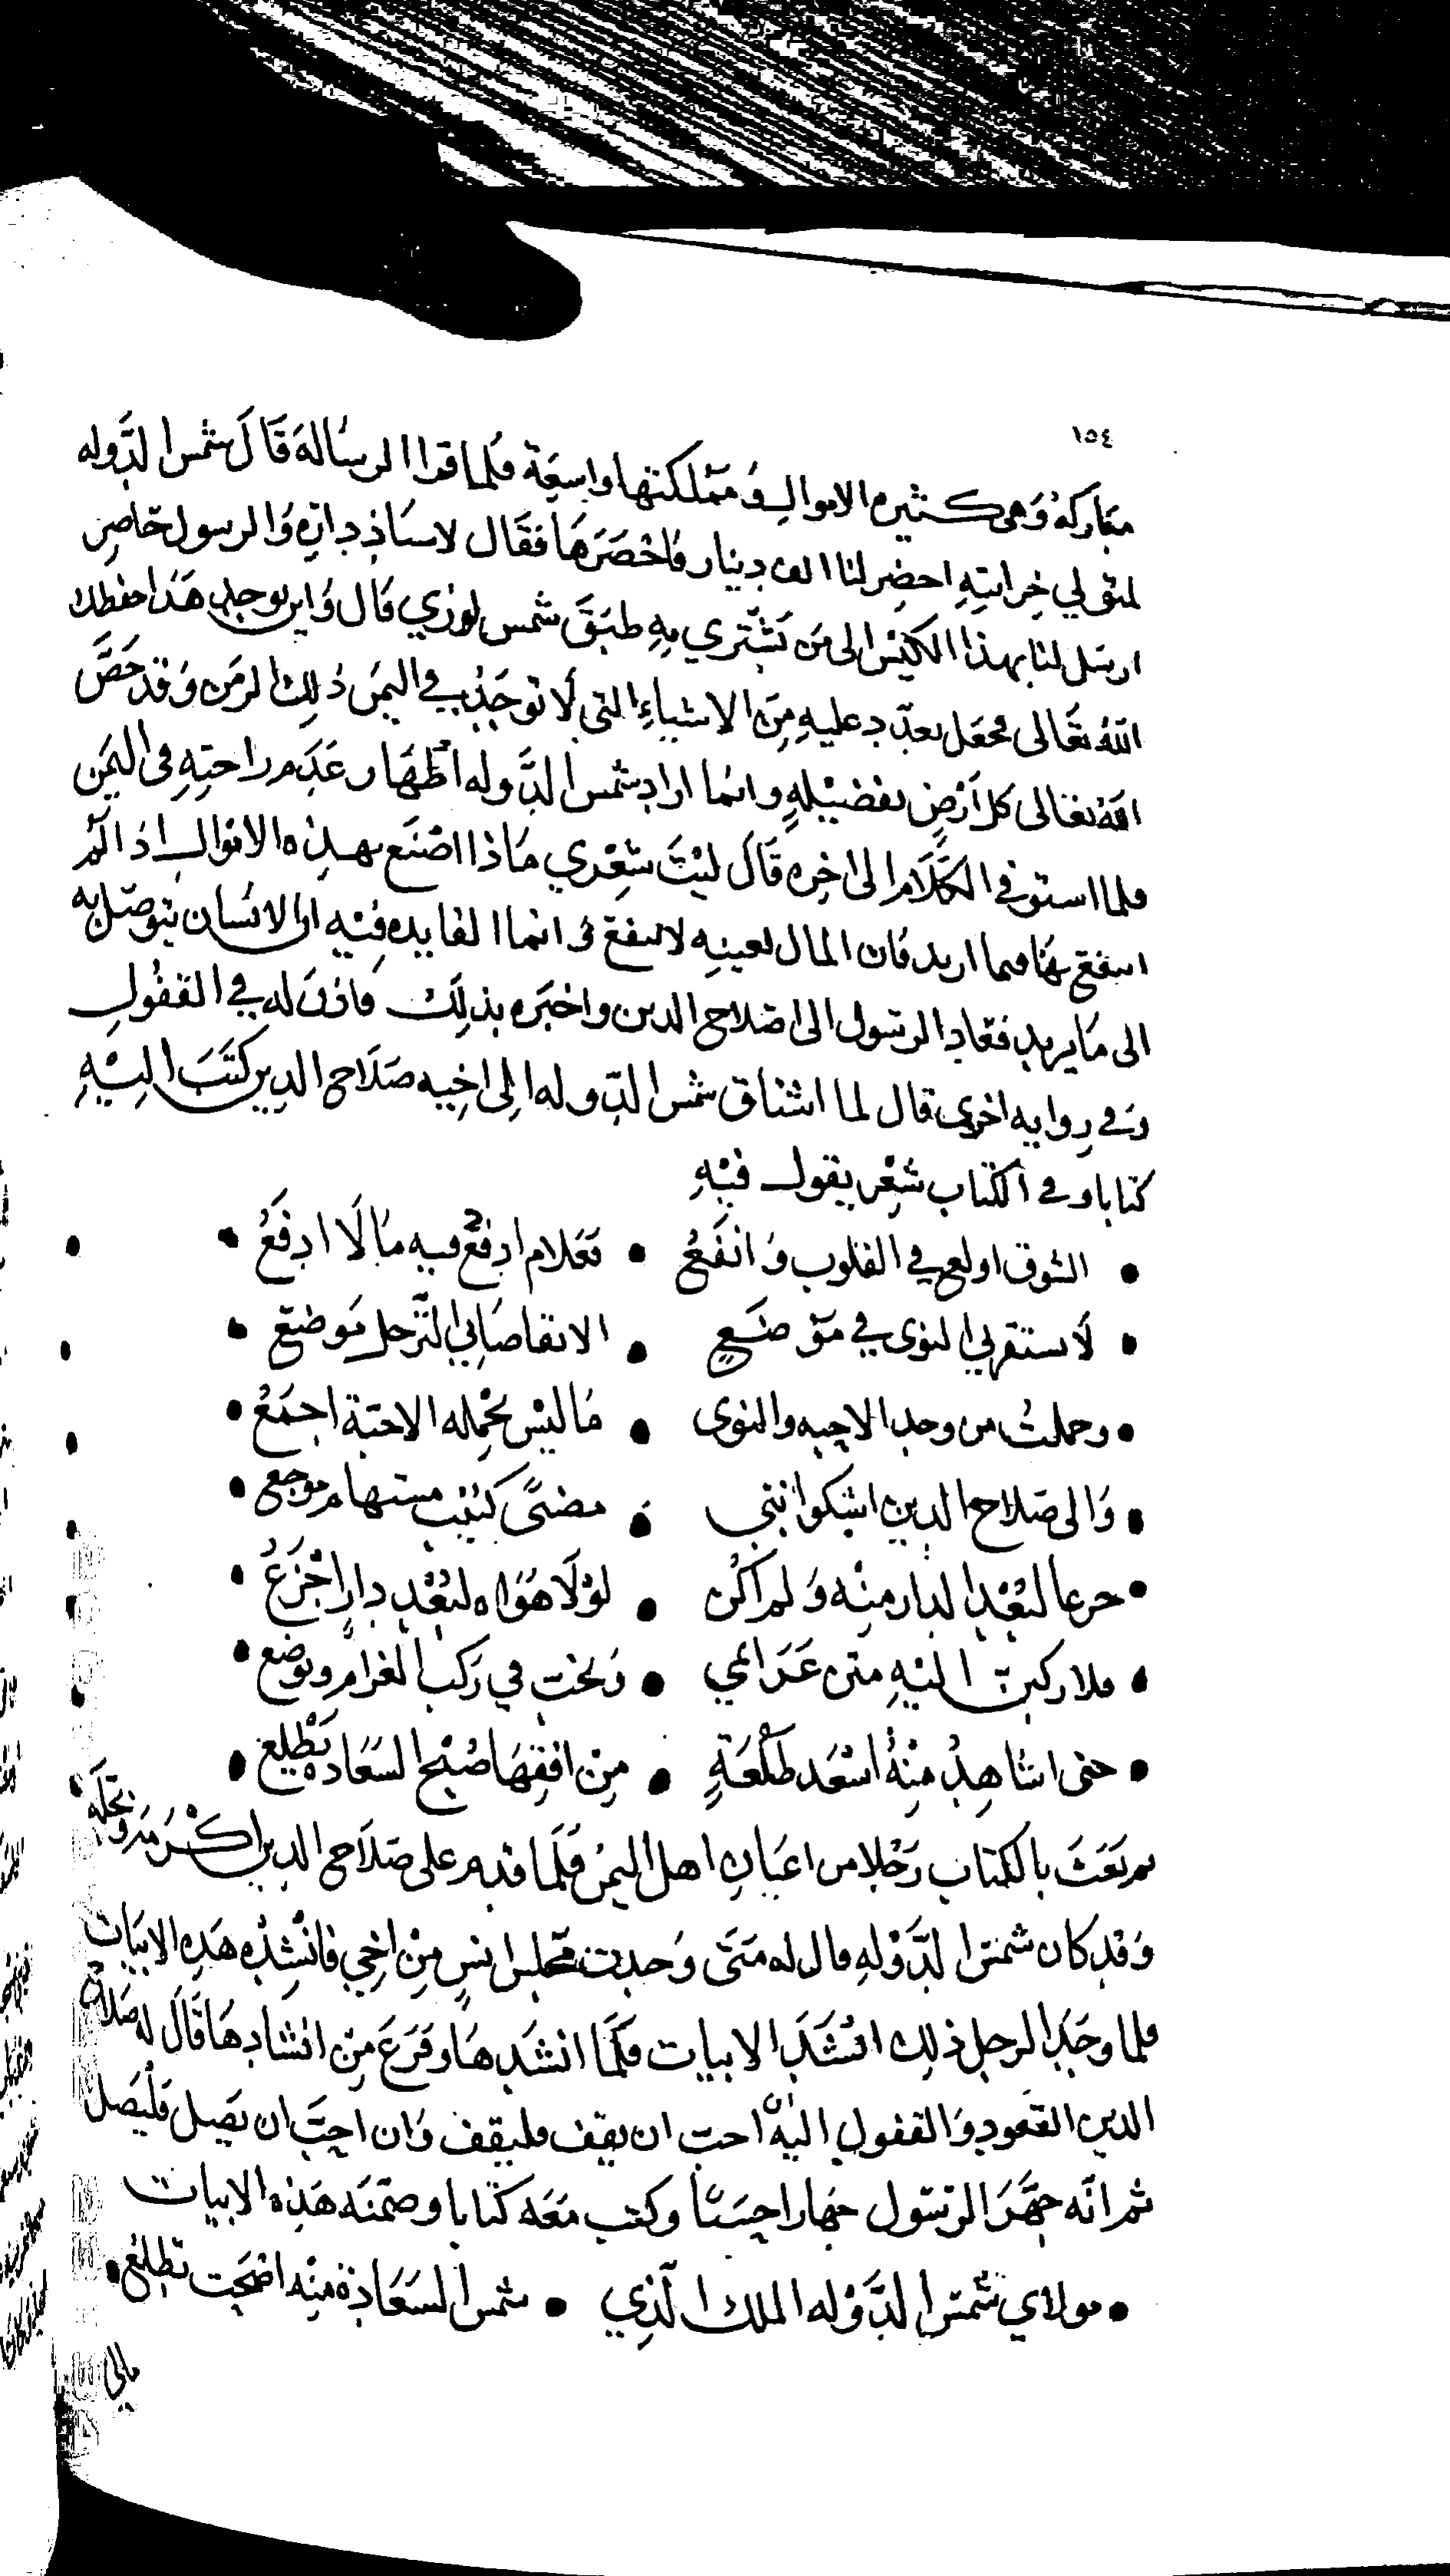 ١٥٤
مباركة وَهى كثيره الاموال وَمملكتها واسِعَة فلما قرا الرسَالة قَالَ شمس الدَّوله
لمتولي خِزانتِهِ احضِر لنا الف دينار فاحْضَرَهَا فقَال لاستاذ دارِه وَالرسول حَاضِر
ارسَل لنا بهذا الكيْس الى مَن يَشْتري بهِ طبَقَ شمس لوزي قال وَاين يوجد هَذا حفظك
اللهُ تعَالى فجعَل يعدّد عليهِ مِنَ الاشياءِ التي لَا توجَدُ في اليمَن ذلِك الزمَن وَقد خَصَّ
الله تعَالى كل اَرْضٍ بفضيْلهٍ وانما اراد شمس الدَّوله اظهَار عَدَم راحتِهِ فى اليَمَن
فلما استوفى الكلَام الى اخِره قَال ليْتَ شِعْري مَاذا اصْنَع بهذه الاموال اذا لَمْ
انتفع بهَا فيما اريد فَان المال لعينِه لا ينفع وَانما الفايده فيْه ان الانسَان يتوصّل به
الى مَا يريد فعَاد الرسَول الى صَلاح الدين واخبَره بذلِكَ فَاذنَ له في القفُول
وَفي رِوايه اخرى قال لما اشتاق شمس الدّوله الِى اخِيه صَلَاح الدين كتَبَ اليْهِ
كتابا وفي الكتاب شِعْر يقول فيْهِ
• الشوق اولع في القلوب وَانفَعُ • فعَلام ادفعُ فيه مَا لَا ادفَعُ •
• لَا يستقر بي النوى في مَوْضَعٍ • الا تقاضَاني الترّحل مَوضِع •
• وحملتُ من وجد الاحِبه والنوى • مَا ليْس يَحْمِله الاحبّة اجمَعُ •
• وَالى صَلاح الدين اشكوا اننى • مضنىً كئيب مستهام موجع •
• جزعا لبُعْدِ الدار منْه وَلم اكُن • لوْلَا هَوَاه لبُعْدِ دارٍ اَجْزَعُ •
• فلاركبن اليْهِ متن عَزائمي • وَيخب في رَكب الغرام ويوضع •
• حتى اشاهِدُ مِنْهُ اسْعَد طَلْعَةٍ • مِنْ افقِهَا صُبْح السَعَاده يَطْلع •
ثم بَعَثَ بالكتاب رَجُلا من اعيَانِ اهل اليمن فَلَمَا قدم على صَلَاح الدين اكرمه وبجّله
وَقد كان شمسَ الدَّوْلهِ قال له مَتَى وَجدت مَجلس انسٍ مِنْ اخِي فانْشِدْه هَذِه الابيَات
فلما وجَدَ الرجل ذلِك انْشَدَ الابيات فلَمَا انشَدهَا وفَرَغَ مِنْ انشَادِهَا قَالَ له صَلاح
الدين القعود وَالقفول اليْه ان احبّ ان يقِف فليقِف وَان احبَّ ان يَصِل فلْيَصل
ثم انّه جهَّزَ الرسَول جهَازا حسَنا وكتب مَعَه كتابا وضمّنَه هَذِه الابيات
• مولاي شمس الدَّوْله الملك الَّذي • شمس السَعَادَة مِنْه اضْحَت تطلعُ •
مالي